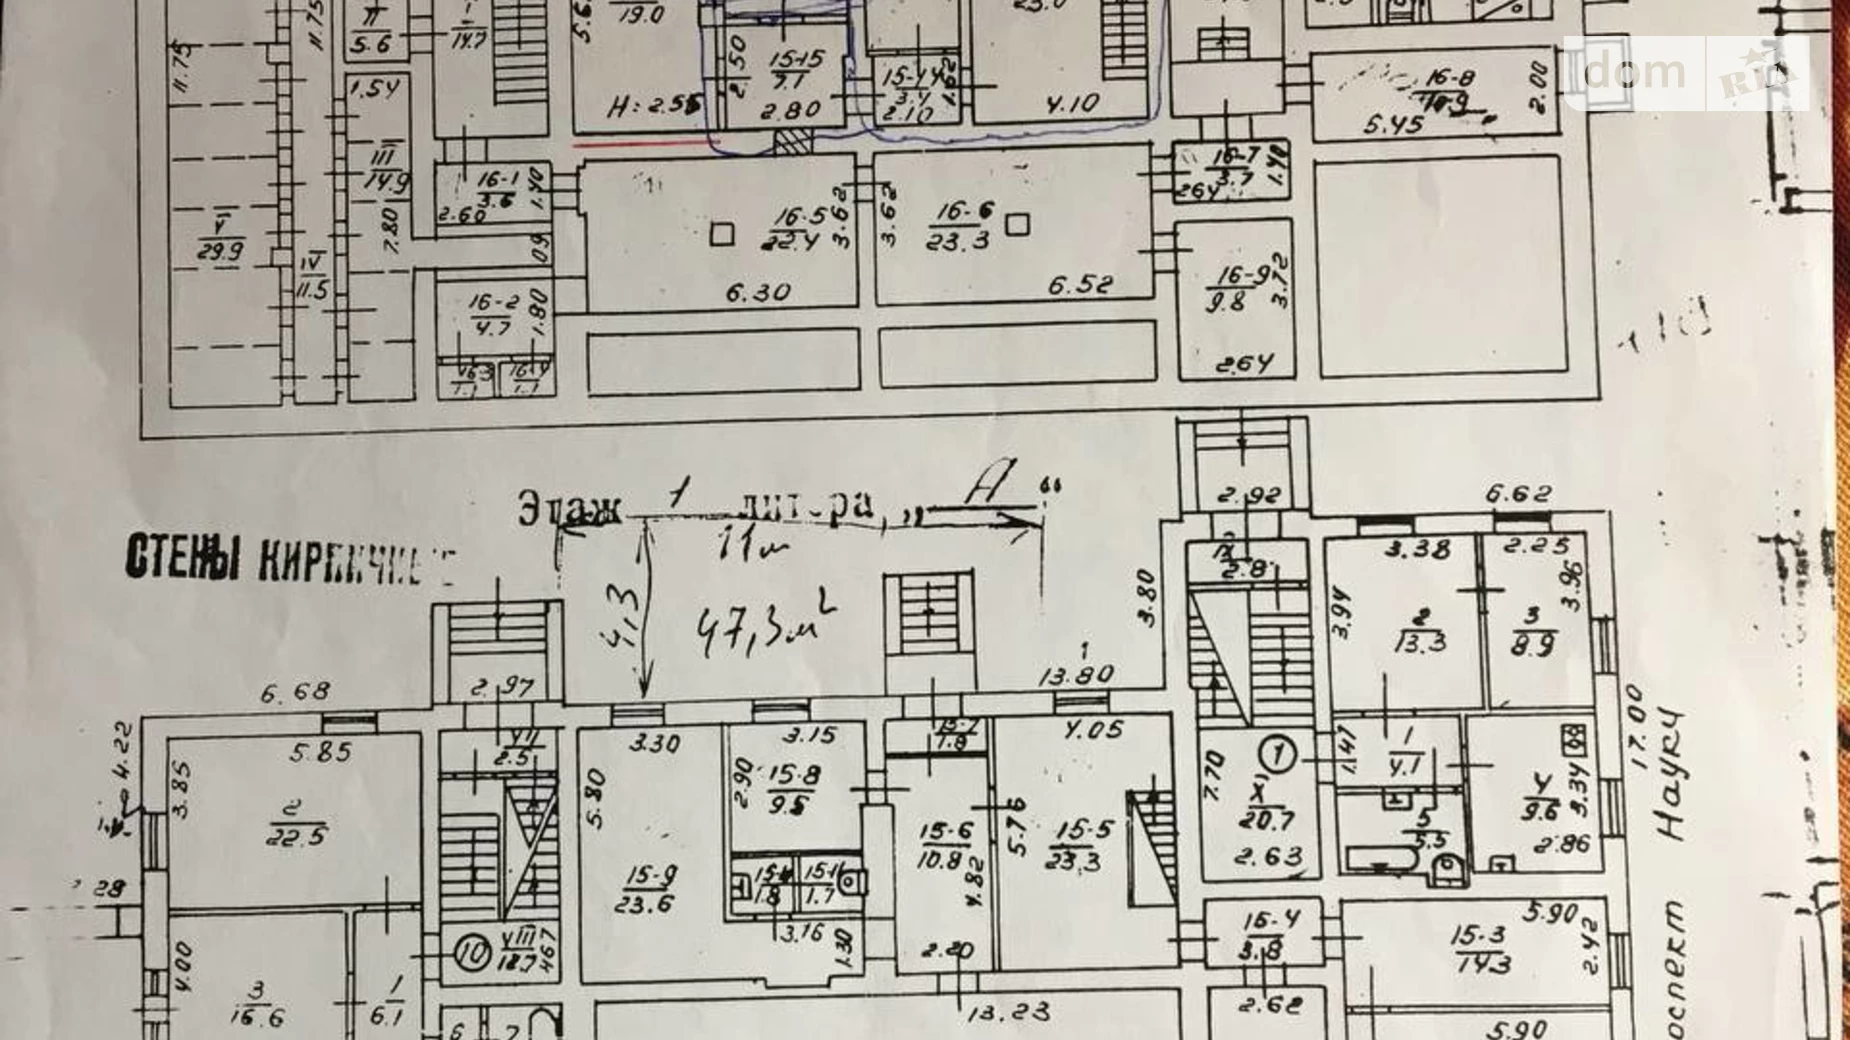 11.75
11.75
II
5.6
14.7
1.54
III
14.9
7.80
V
29.9
IV
11.5
19.0
H: 2.55
2.50
15-15
7.1
2.80
15-14
3.4
2.10
1.62
23.0
4.10
16-8
10.9
5.45
2.00
dom
RIA
16-1
3.6
2.60
1.40
16-5
22.4
3.62
6.30
3.62
16-6
23.3
6.52
16-7
3.7
2.64
1.40
16-9
9.8
3.72
2.64
16-2
4.7
1.80
16-3
1.1
16-4
1.1
Этаж 1 литера „А“
СТЕНЫ КИРПИЧНЫЕ
11м
4,3
47,3м²
2.92
6.62
2.8
3.38
2.25
3.94
2
13.3
3
8.9
3.96
3.80
1
13.80
6.68
2.97
4.22
3.85
5.85
2
22.5
VII
2.5
3.30
5.80
15-9
23.6
3.15
2.90
15-8
9.5
1.8
15-11
1.7
3.16
1.30
15-7
1.8
15-6
10.8
4.82
2.20
4.05
5.76
15-5
23.3
7.70
1
X
20.7
2.63
1.47
1
4.1
5
5.5
4
9.6
3.34
2.86
17.00
проспект Науку
28
4.00
3
16.6
1
6.1
10
VIII
18.7
4.67
15-4
3.8
5.90
15-3
14.3
2.42
6
7
13.23
2.62
5.90